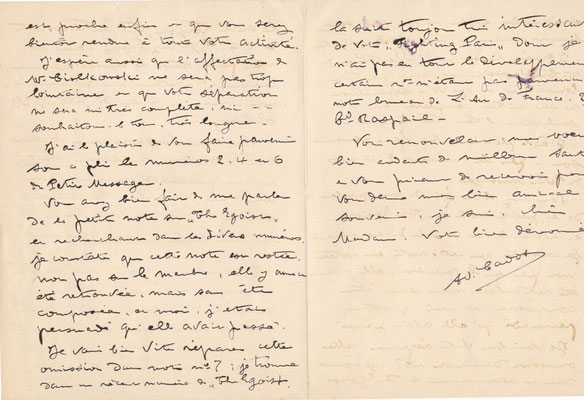 est proche enfin et que vous serez
bientôt rendue à toute votre activité.
J'espère aussi que l'affectation de
Mr Ciolkowski ne sera pas trop
lointaine et que votre séparation
ne sera ni très complète, ni --
souhaitons-le tous, très longue.
J'ai le plaisir de vous faire parvenir
sous ce pli les numéros 2. 4 et 6
de Petits Messages.
Vous avez bien fait de me parler
de la petite note sur "The Egoist"
en recherchant dans les divers numéros,
je constate que cette note est restée
non pas sur le marbre, elle y aurait
été retrouvée, mais sans être
composée et moi, j'étais
persuadé qu'elle avait passé.
Je vais bien vite réparer cette
omission dans notre n° 7; je trouve
dans un récent numéro de "The Egoist"
la suite toujours très intéressante
de votre "Fighting Paris" dont je
n'ai pas eu tous les développements
certains nos n'étant pas parvenus
notre bureau de L. de France, 2
Bd Raspail -
Vous renouvelant mes voeux
bien ardents de meilleure santé
et vous priant de recevoir pour
vous deux mon bien amical
souvenir, je suis, chère
Madame, votre bien dévoué